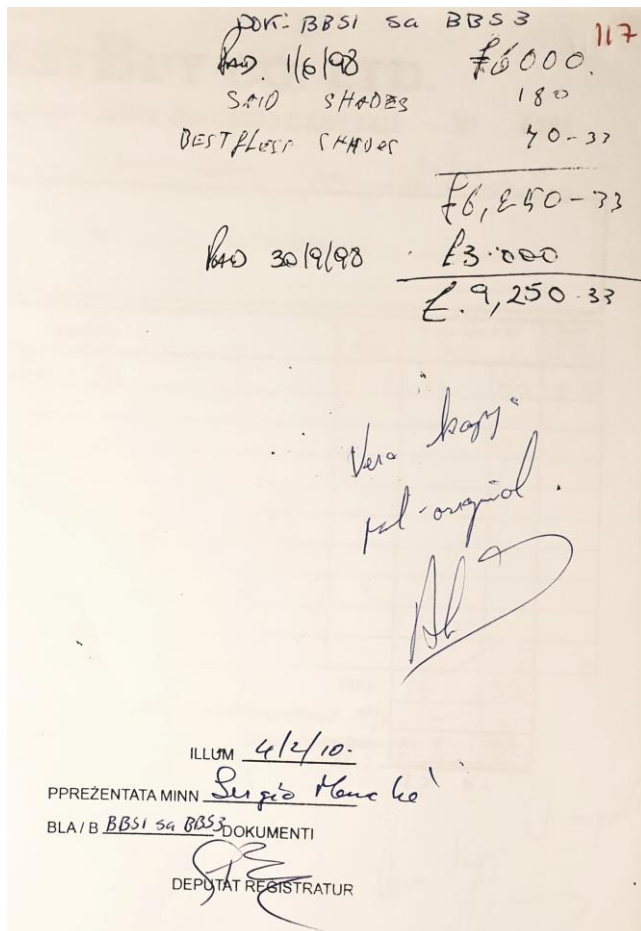 DOK: BBS1 sa BBS3
117
PAID 1/6/98 £6000.
SAID SHADES 180
SHADES 70-33
£6,250-33
PAID 30/9/98 £3.000
£. 9,250.33
Vera kopja
tal-original.
ILLUM 4/2/10.
PPREŻENTATA MINN Sergio
BLA / B BBS1 sa BBS3 DOKUMENTI
DEPUTAT REĠISTRATUR